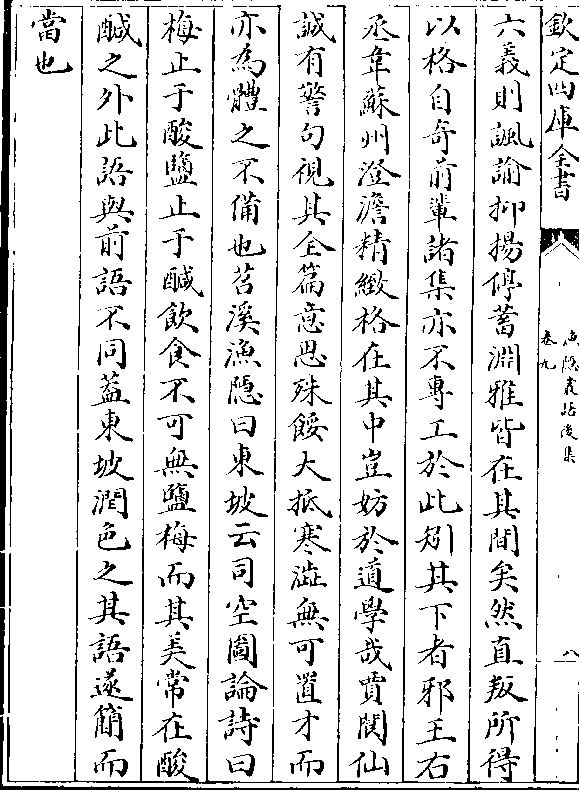 欽定四庫全書
漁隠叢話後集
卷九
八
六義則諷諭抑揚停蓄淵雅皆在其間矣然直叛所得
以格自奇前輩諸集亦不專工於此矧其下者邪王右
丞韋蘇州澄澹精緻格在其中豈妨於道學哉賈閬仙
誠有警句視其全篇意思殊餒大抵寒澁無可置才而
亦為體之不備也苕溪漁隠曰東坡云司空圖論詩曰
梅止于酸鹽止于鹹飲食不可無鹽梅而其美常在酸
鹹之外此語與前語不同葢東坡潤色之其語遂簡而
當也